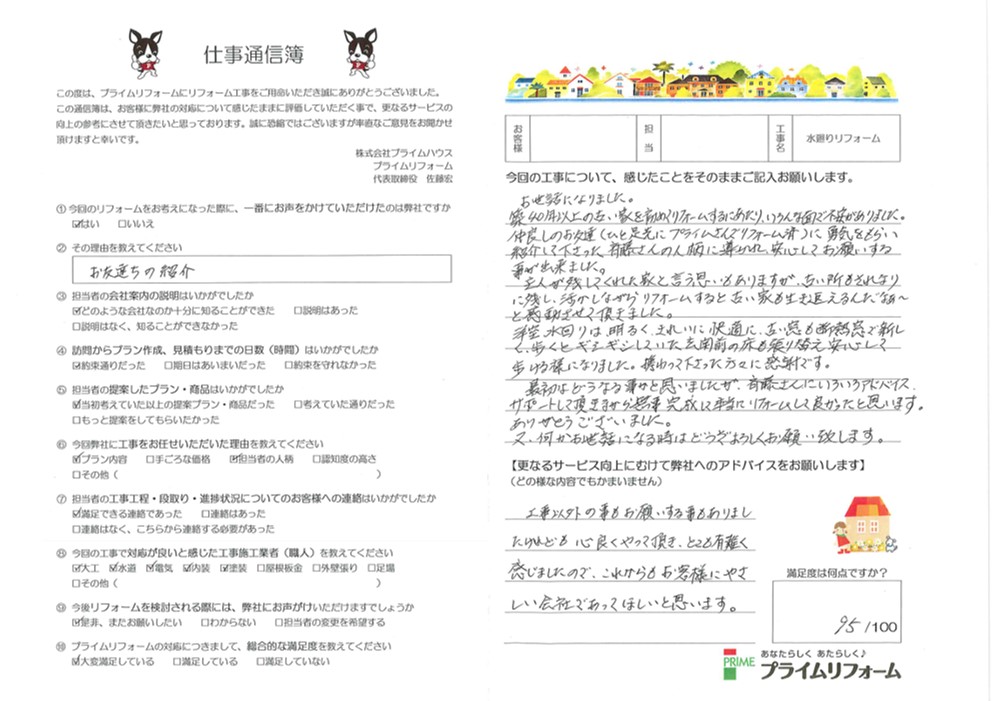 仕事通信簿
この度は、プライムリフォームにリフォーム工事をご用命いただき誠にありがとうございました。
この通信簿は、お客様に弊社の対応について感じたままに評価していただく事で、更なるサービスの
向上の参考にさせて頂きたいと思っております。誠に恐縮ではございますが率直なご意見をお聞かせ
頂けますと幸いです。
株式会社プライムハウス
プライムリフォーム
代表取締役 佐藤宏
① 今回のリフォームをお考えになった際に、一番にお声をかけていただけたのは弊社ですか
☑はい □いいえ
② その理由を教えてください
お友達ちの紹介
③ 担当者の会社案内の説明はいかがでしたか
☑どのような会社なのか十分に知ることができた □説明はあった
□説明はなく、知ることができなかった
④ 訪問からプラン作成、見積もりまでの日数（時間）はいかがでしたか
☑約束通りだった □期日はあいまいだった □約束を守れなかった
⑤ 担当者の提案したプラン・商品はいかがでしたか
☑当初考えていた以上の提案プラン・商品だった □考えていた通りだった
□もっと提案をしてもらいたかった
⑥ 今回弊社に工事をお任せいただいた理由を教えてください
☑プラン内容 □手ごろな価格 ☑担当者の人柄 □認知度の高さ
□その他（ ）
⑦ 担当者の工事工程・段取り・進捗状況についてのお客様への連絡はいかがでしたか
☑満足できる連絡であった □連絡はあった
□連絡はなく、こちらから連絡する必要があった
⑧ 今回の工事で対応が良いと感じた工事施工業者（職人）を教えてください
☑大工 ☑水道 ☑電気 ☑内装 ☑塗装 □屋根板金 □外壁張り □足場
□その他（ ）
⑨ 今後リフォームを検討される際には、弊社にお声がけいただけますでしょうか
☑是非、またお願いしたい □わからない □担当者の変更を希望する
⑩ プライムリフォームの対応につきまして、総合的な満足度を教えてください
☑大変満足している □満足している □満足していない
お客様 担当 工事名 水廻りリフォーム
今回の工事について、感じたことをそのままご記入お願いします。
お世話になりました。
築40年以上の古い家を初めてリフォームするにあたり、いろんな面で不安がありました。
仲良しのお友達（ひと足先にプライムさんでリフォーム済）に勇気をもらい
紹介して下さった斉藤さんの人柄に導かれ、安心してお願いする
事が出来ました。
主人が残してくれた家と言う思いもありますが、古い所もそれなり
に残し、活かしながらリフォームすると古い家も生き返えるんだなぁ〜
と感動させて頂きました。
洋室、水回りは、明るく、きれいに快適に、古い窓も断熱窓で新し
く、歩くとギシギシしていた玄関前の床も張り替え安心して
歩ける様になりました。携わって下さった方々に感謝です。
最初はどうなる事かと思いましたが、斉藤さんにいろいろアドバイス、
サポートして頂きながら無事完成して本当にリフォームして良かったと思います。
ありがとうございました。
又、何かお世話になる時はどうぞよろしくお願い致します。
【更なるサービス向上にむけて弊社へのアドバイスをお願いします】
（どの様な内容でもかまいません）
工事以外の事もお願いする事もありまし
たけれども 心良くやって頂き、とても有難く
感じましたので、これからもお客様にやさ
しい会社であってほしいと思います。
満足度は何点ですか？
95/100
PRIME あなたらしく あたらしく♪
プライムリフォーム